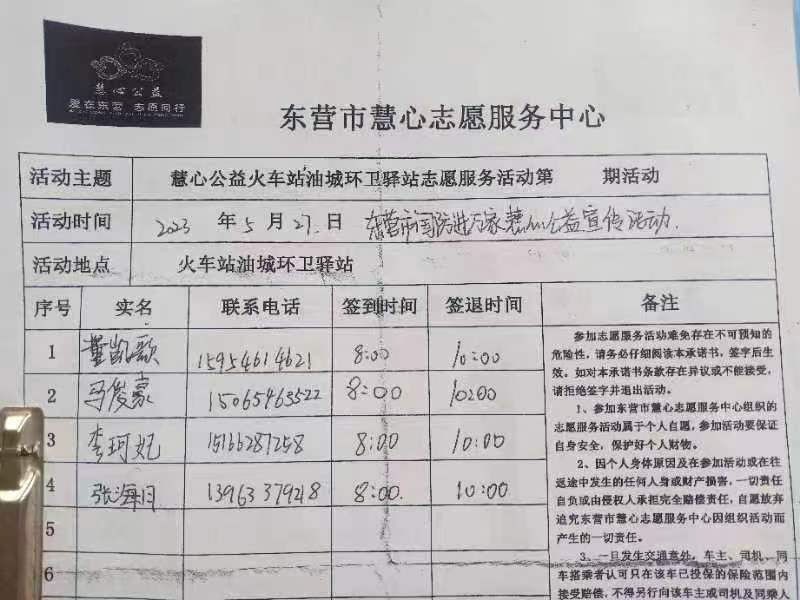 慧心公益
爱在东营 志愿同行
东营市慧心志愿服务中心
活动主题 慧心公益火车站油城环卫驿站志愿服务活动第 期活动
活动时间 2023 年 5 月 27 日 东营市国防进万家慧心公益宣传活动.
活动地点 火车站油城环卫驿站
序号 实名 联系电话 签到时间 签退时间 备注
1 董凯歌 15954614621 8:00 10:00
2 马俊豪 15065463522 8:00 10:00
3 李珂妃 15166287258 8:00 10:00
4 张海月 13963379218 8:00. 10:00
5
6
参加志愿服务活动难免存在不可预知的
危险性,请务必仔细阅读本承诺书,签字后生
效。如对本承诺书条款存在异议或不能接受,
请拒绝签字并退出活动。
1、参加东营市慧心志愿服务中心组织的
志愿服务活动属于个人自愿,参加活动要保证
自身安全,保护好个人财物。
2、因个人身体原因及在参加活动或在往
返途中发生的任何人身或财产损害,一切责任
自负或由侵权人承担完全赔偿责任,自愿放弃
追究东营市慧心志愿服务中心因组织活动而
产生的一切责任。
3、一旦发生交通意外,车主、司机、同
车搭乘者认可只在该车已投保的保险范围内
接受赔偿,不得另行向该车主或司机及同乘人